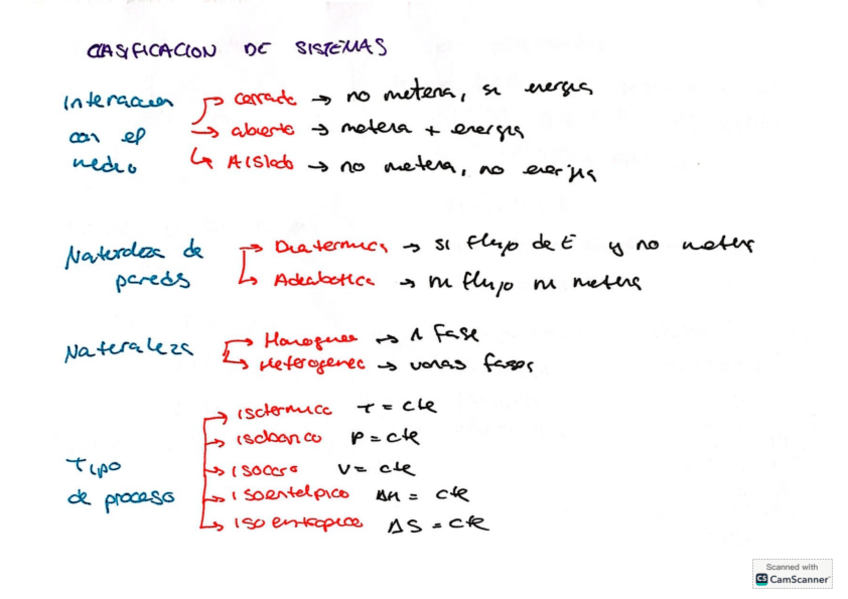 CLASIFICACION DE SISTEMAS
Interaccion con el medio
cerrado → no materia, si energia
abierto → materia + energia
Aislado → no materia, no energia
Naturaleza de pareds
Diatermica → si flujo de E y no materia
Adiabatica → ni flujo ni materia
Naturaleza
Homogenea → 1 fase
Heterogenea → varias fases
Tipo de proceso
isotermico T = cte
isobarico P = cte
isocoro V = cte
isoentalpico ΔH = cte
isoentropico ΔS = cte
Scanned with
CS CamScanner